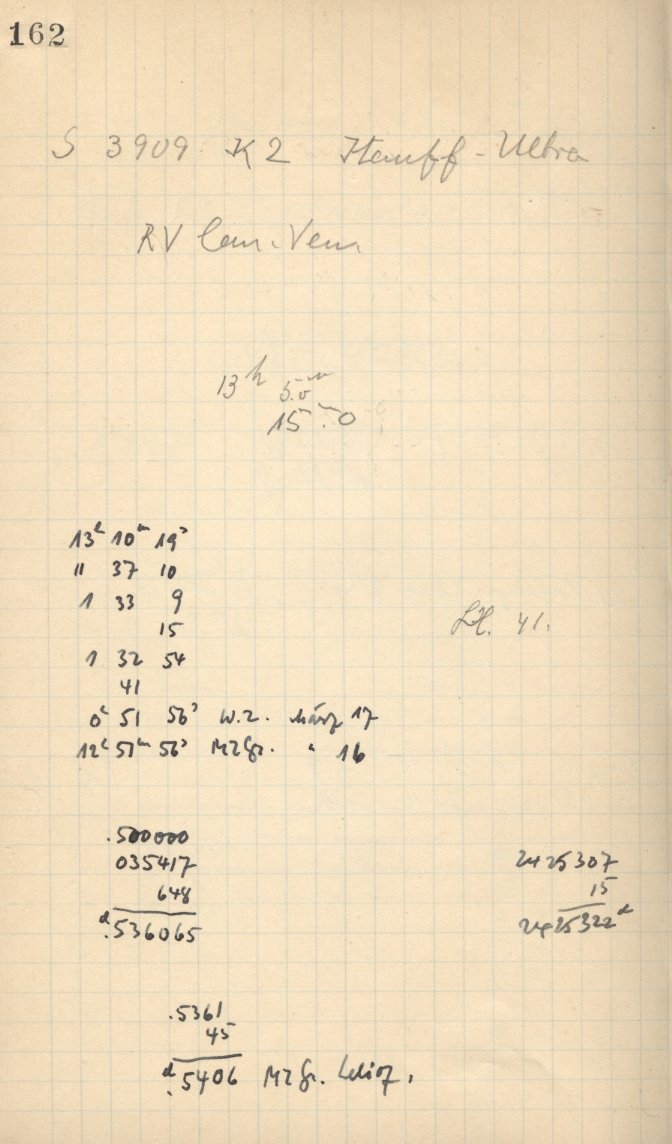 162
S 3909 K2 Hauff-Ultra
RV Can. Ven.
13h 5.0m
15m.0
13h 10m 19s
" 37 10
1 33 9
15
1 32 54
41
0h 51 56s W.Z. März 17
12h 51m 56s MZGr. " 16
.500000
035417
648
d.536065
2425307
15
2425322d
.5361
45
d.5406 MZGr. helioz.